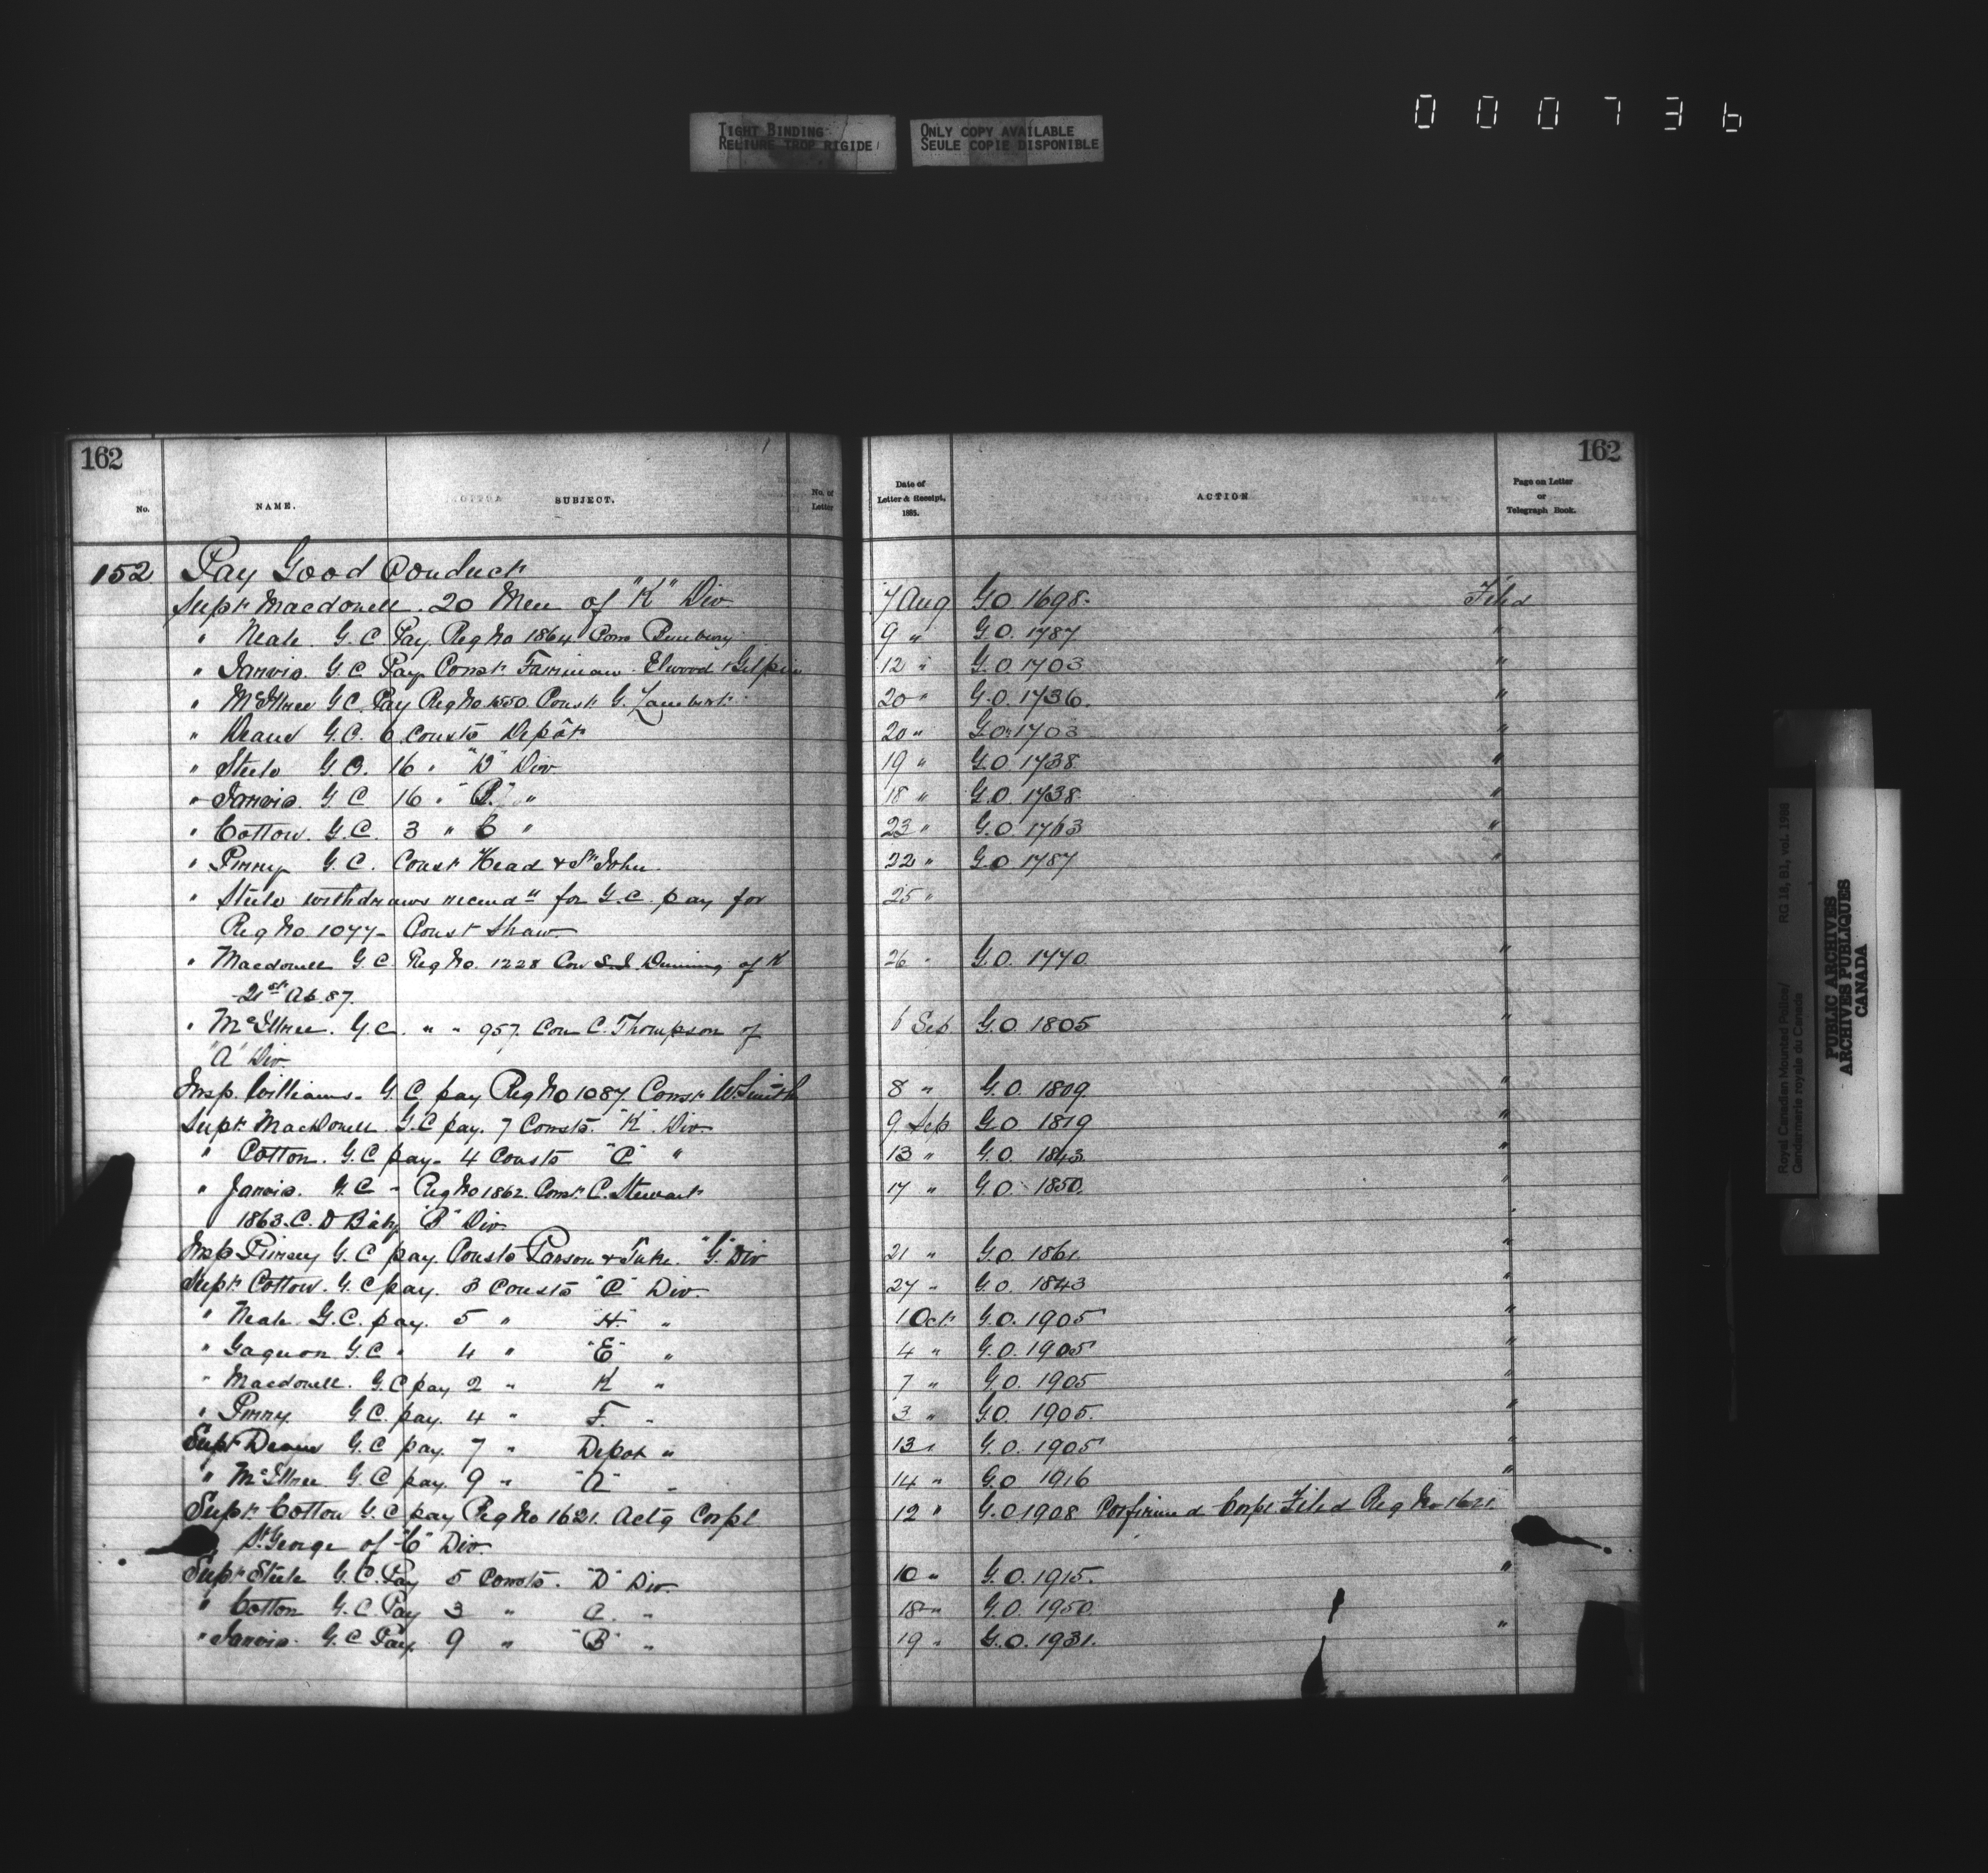 000736
TIGHT BINDING
RELIURE TROP RIGIDE
ONLY COPY AVAILABLE
SEULE COPIE DISPONIBLE
162 162
No. NAME. SUBJECT. No. of Letter Date of Letter & Receipt, 1885. ACTION Page on Letter or Telegraph Book.
152 Pay Good Conduct
Supt Macdonell. 20 Men of "K" Div 7 Aug G.O 1698. Filed
" Neale. G.C. Pay. Reg No 1864 Cons Bunbury 9 " G.O. 1787 "
" Jarvis. G.C. Pay Const Fairman Elwood & Gilpin 12 " G.O 1703 "
" McIllree G.C. Pay Reg No 1550. Const G. Lambert 20 " G.O. 1736. "
" Deane G.C. 6 Consts Depôt 20 " G.O. 1703 "
" Steele G.C. 16 " "D" Div 19 " G.O 1738 "
" Jarvis. G.C 16 " "B" " 18 " G.O. 1738 "
" Cotton. G.C. 3 " C " 23 " G.O. 1763 "
" Perry G.C. Const Head & St John. 22 " G.O 1787 "
" Steele withdraws recomdn for G.C. pay for 25 "
Reg No. 1077 - Const Shaw
" Macdonell G.C. Reg No. 1228 Con S.J. Dunning of K 26 " G.O. 1770. "
21st Ap. 87.
" McIllree. G.C. " " 957. Con C. Thompson of 6 Sep G.O. 1805 "
"A" Div.
Insp. Williams. G.C. pay Reg No 1087. Const W. Smith 8 " G.O. 1809. "
Supt MacDonell. G.C pay. 7 Consts. "K" Div. 9 Sep G.O. 1819 "
" Cotton. G.C pay. 4 Consts "C" " 13 " G.O. 1843. "
" Jarvis. G.C - Reg No 1862. Const C. Stewart 17 " G.O. 1850. "
1863. C. D "B" Div "
Insp G.C pay. Consts Parson & Tuke. "G" Div 21 " G.O. 1861. "
Supt Cotton. G.C pay. 3 Consts "C" Div. 27 " G.O. 1843 "
" Neale G.C. pay. 5 " "H" " 1 Oct G.O. 1905 "
" Gagnon G.C " 4 " "E" " 4 " G.O. 1905 "
" Macdonell. G.C pay 2 " K " 7 " G.O. 1905 "
" Perry G.C. pay. 4 " F. " 3 " G.O. 1905. "
Supt Deane G.C pay. 7 " Depot " 13 " G.O. 1905 "
" McIllree G.C pay. 9 " "A" " 14 " G.O 1916 "
Supt Cotton G.C pay Reg No 1621. Actg Corpl 12 " G.O 1908 Confirmed Corpl Filed Reg No 1621
St George of "C" Div.
Supt Steele G.C. Pay 5 Consts. "D" Div. 10 " G.O. 1915. "
" Cotton G.C. Pay 3 " C. " 18 " G.O. 1950.
" Jarvis. G.C Pay. 9 " "B" " 19 " G.O. 1931. "
Royal Canadian Mounted Police/ RG 18, B1, vol. 1988
Gendarmerie royale du Canada
PUBLIC ARCHIVES
ARCHIVES PUBLIQUES
CANADA